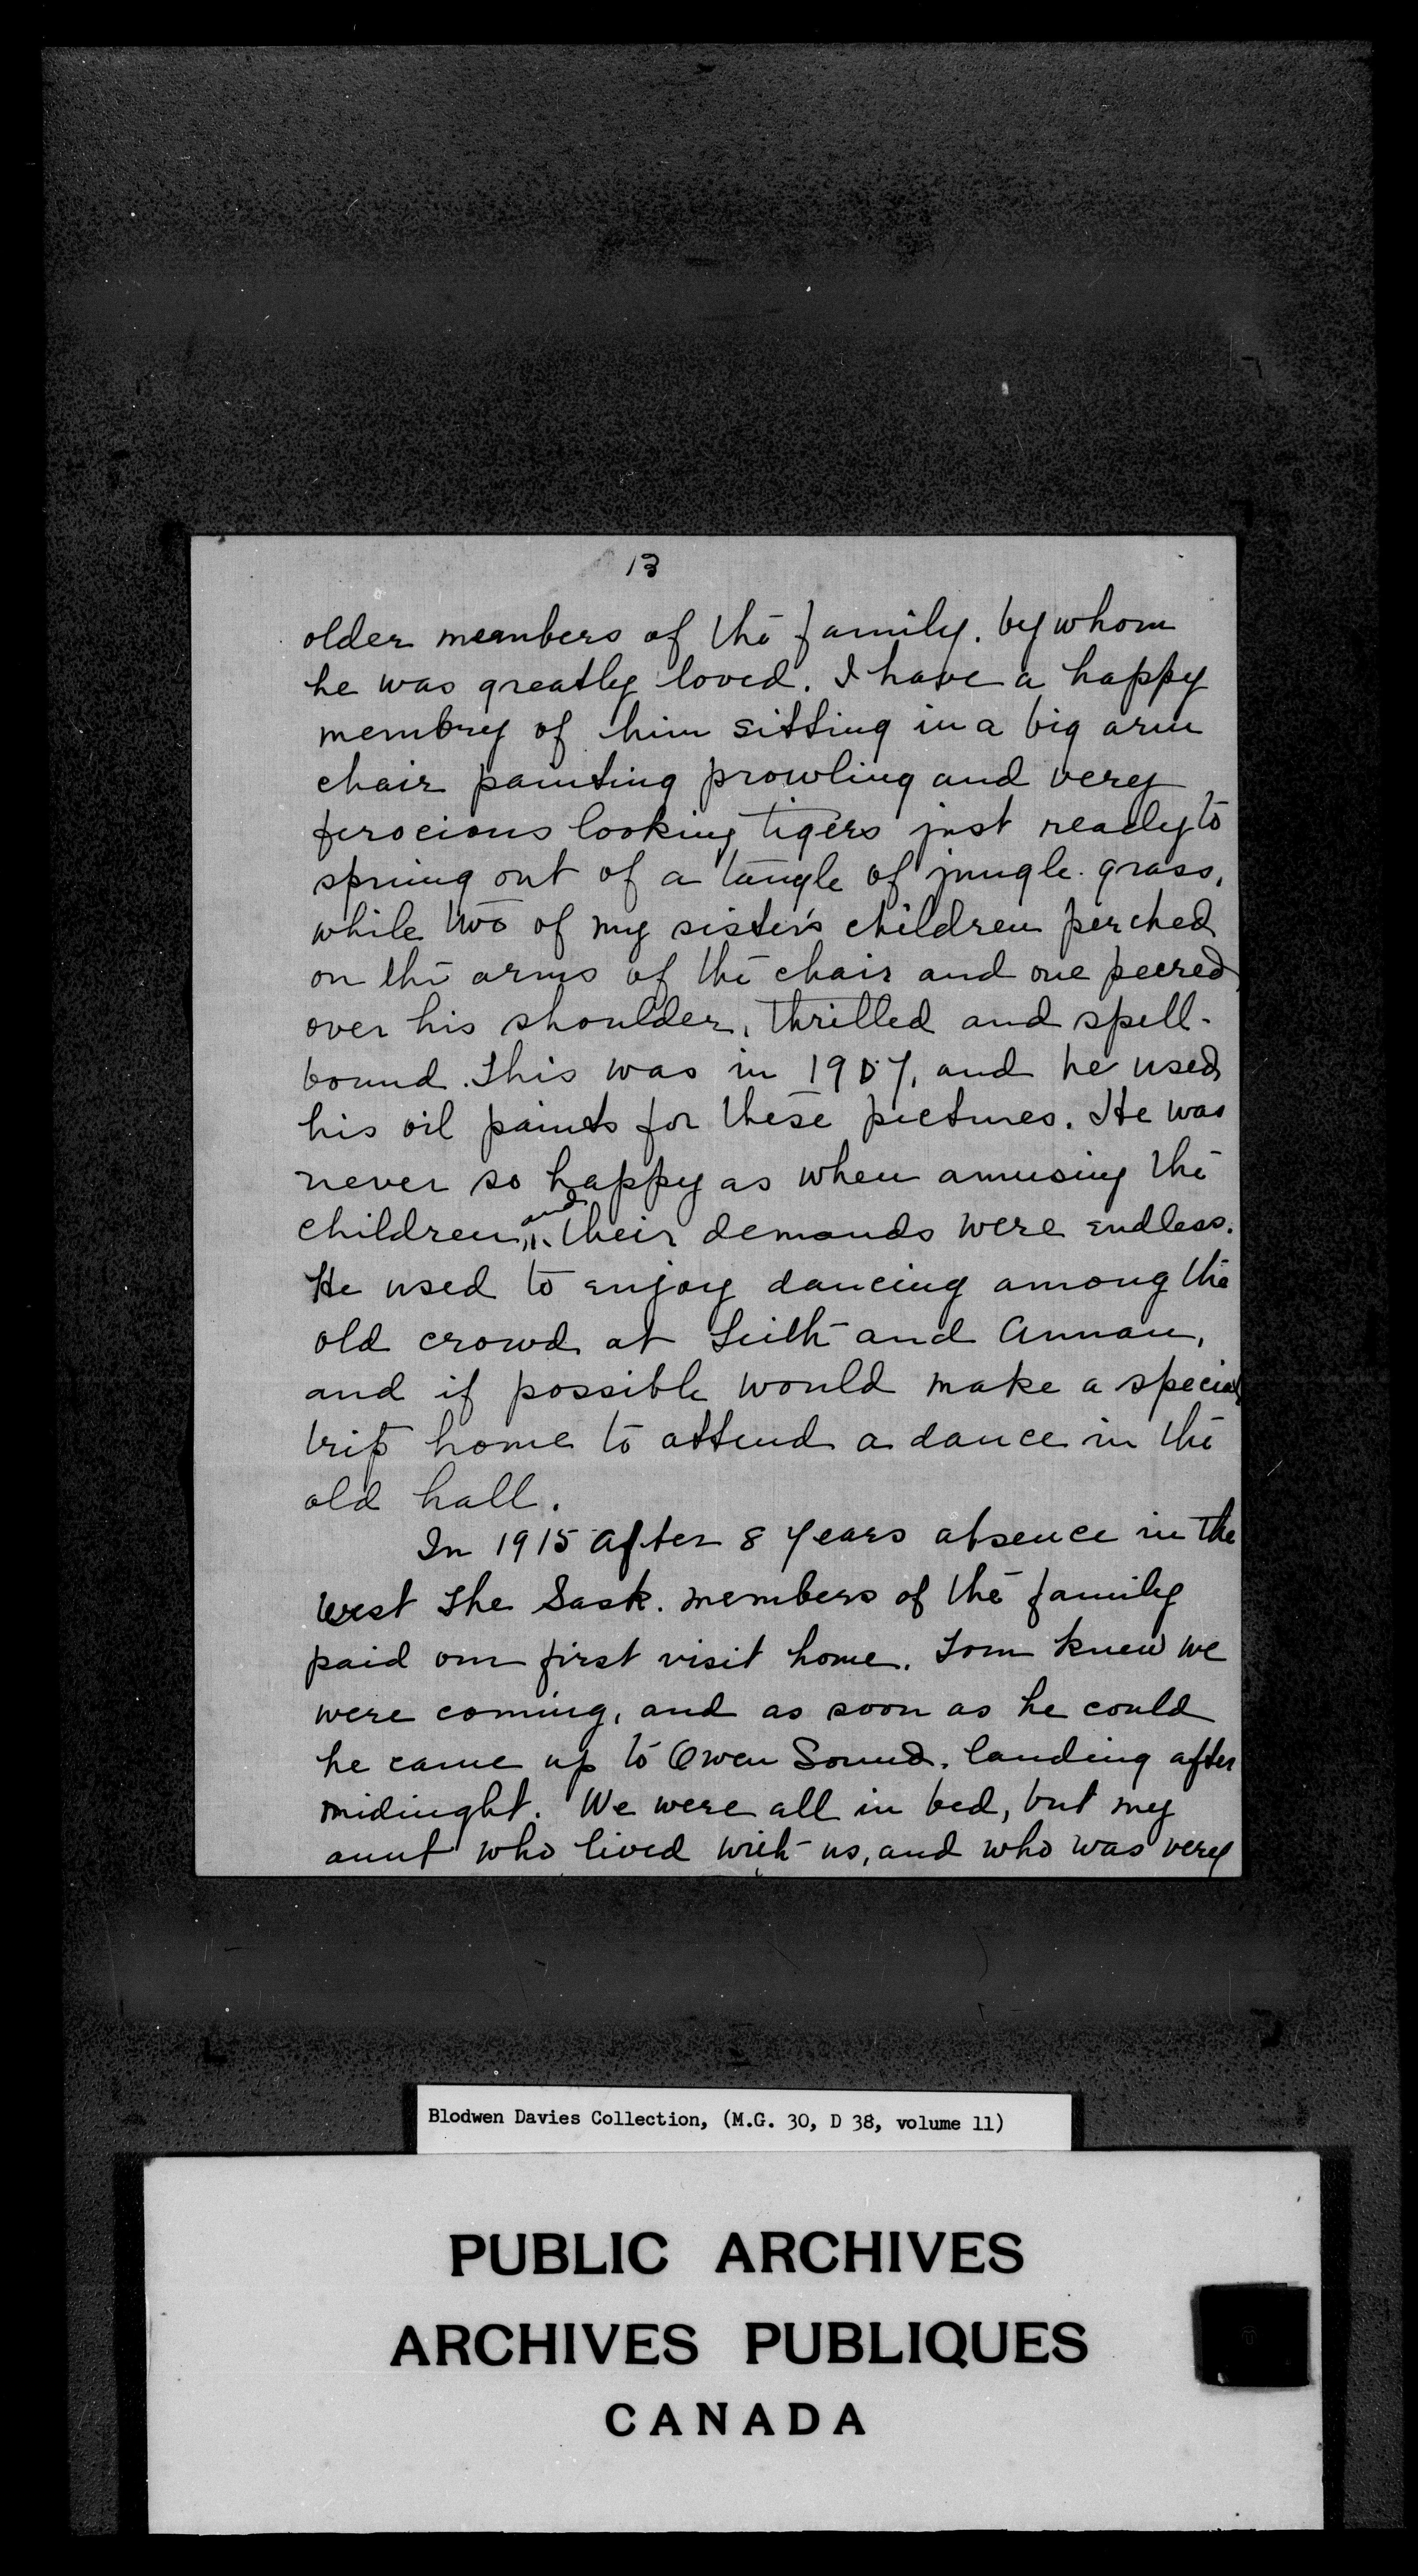 13
older members of the family. by whom
he was greatly loved. I have a happy
memory of him sitting in a big arm
chair painting prowling and very
ferocious looking tigers just ready to
spring out of a tangle of jungle grass,
while two of my sister's children perched
on the arms of the chair and one peered
over his shoulder, thrilled and spell-
bound. This was in 1907, and he used
his oil paints for these pictures. He was
never so happy as when amusing the
children, and their demands were endless.
He used to enjoy dancing among the
old crowd at Leith and Annan,
and if possible would make a special
trip home to attend a dance in the
old hall.
In 1915 after 8 years absence in the
West the Sask. members of the family
paid our first visit home. Tom knew we
were coming, and as soon as he could
he came up to Owen Sound, landing after
midinght. We were all in bed, but my
aunt who lived with us, and who was very
Blodwen Davies Collection, (M.G. 30, D 38, volume 11)
PUBLIC ARCHIVES
ARCHIVES PUBLIQUES
CANADA